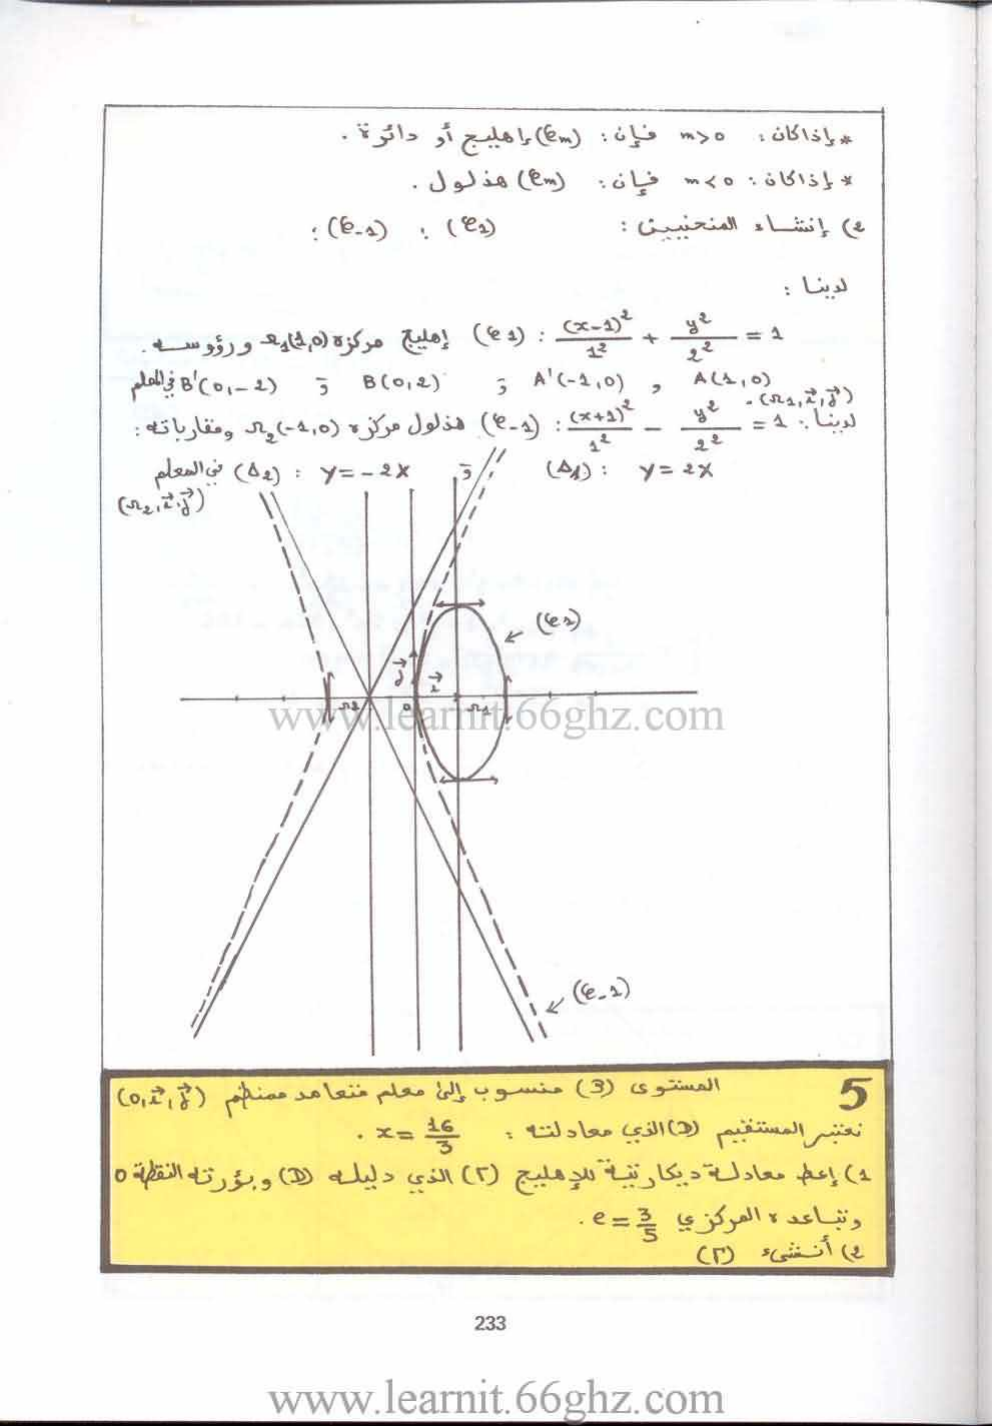 * إذا كان : m > 0 فإن : (𝒞m) إهليج أو دائرة .
* إذا كان : m < 0 فإن : (𝒞m) هذلول .
2) إنشاء المنحنيين : (𝒞1) ; (𝒞-1) :
لدينا :
(𝒞1) : (x-1)²/1² + y²/2² = 1 إهليج مركزه Ω1(1,0) ورؤوسه .
A(1,0) و A'(-1,0) و B(0,2) و B'(0,-2) في المعلم
(Ω1, i⃗, j⃗) .
لدينا : (𝒞-1) : (x+1)²/1² - y²/2² = 1 هذلول مركزه Ω2(-1,0) ومقارباته :
(Δ1) : y = 2x و (Δ2) : y = -2x في المعلم
(Ω2, i⃗, j⃗)
(𝒞1)
j⃗
i⃗
Ω2
0
Ω1
www.learnit.66ghz.com
(𝒞-1)
5
المستوى (P) منسوب إلى معلم متعامد ممنظم (0, i⃗, j⃗)
نعتبر المستقيم (D) الذي معادلته : x = 16/3 .
1) إعط معادلة ديكارتية للإهليج (Γ) الذي دليله (D) وبؤرته النقطة 0
وتباعده المركزي e = 3/5 .
2) أنشىء (Γ)
233
www.learnit.66ghz.com